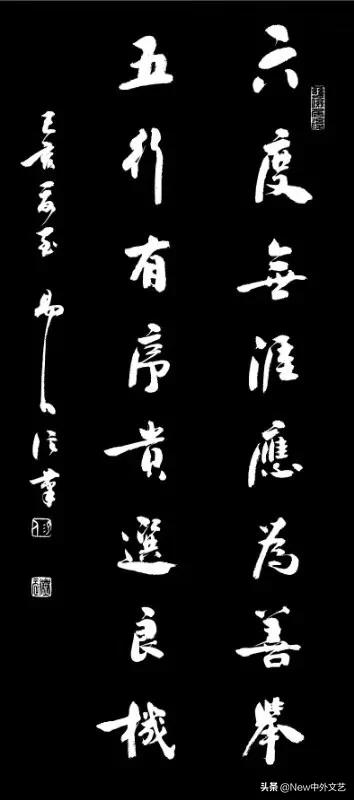 六度無涯應為善舉
五行有序貴選良機
己亥夏至
頭条 @New中外文艺